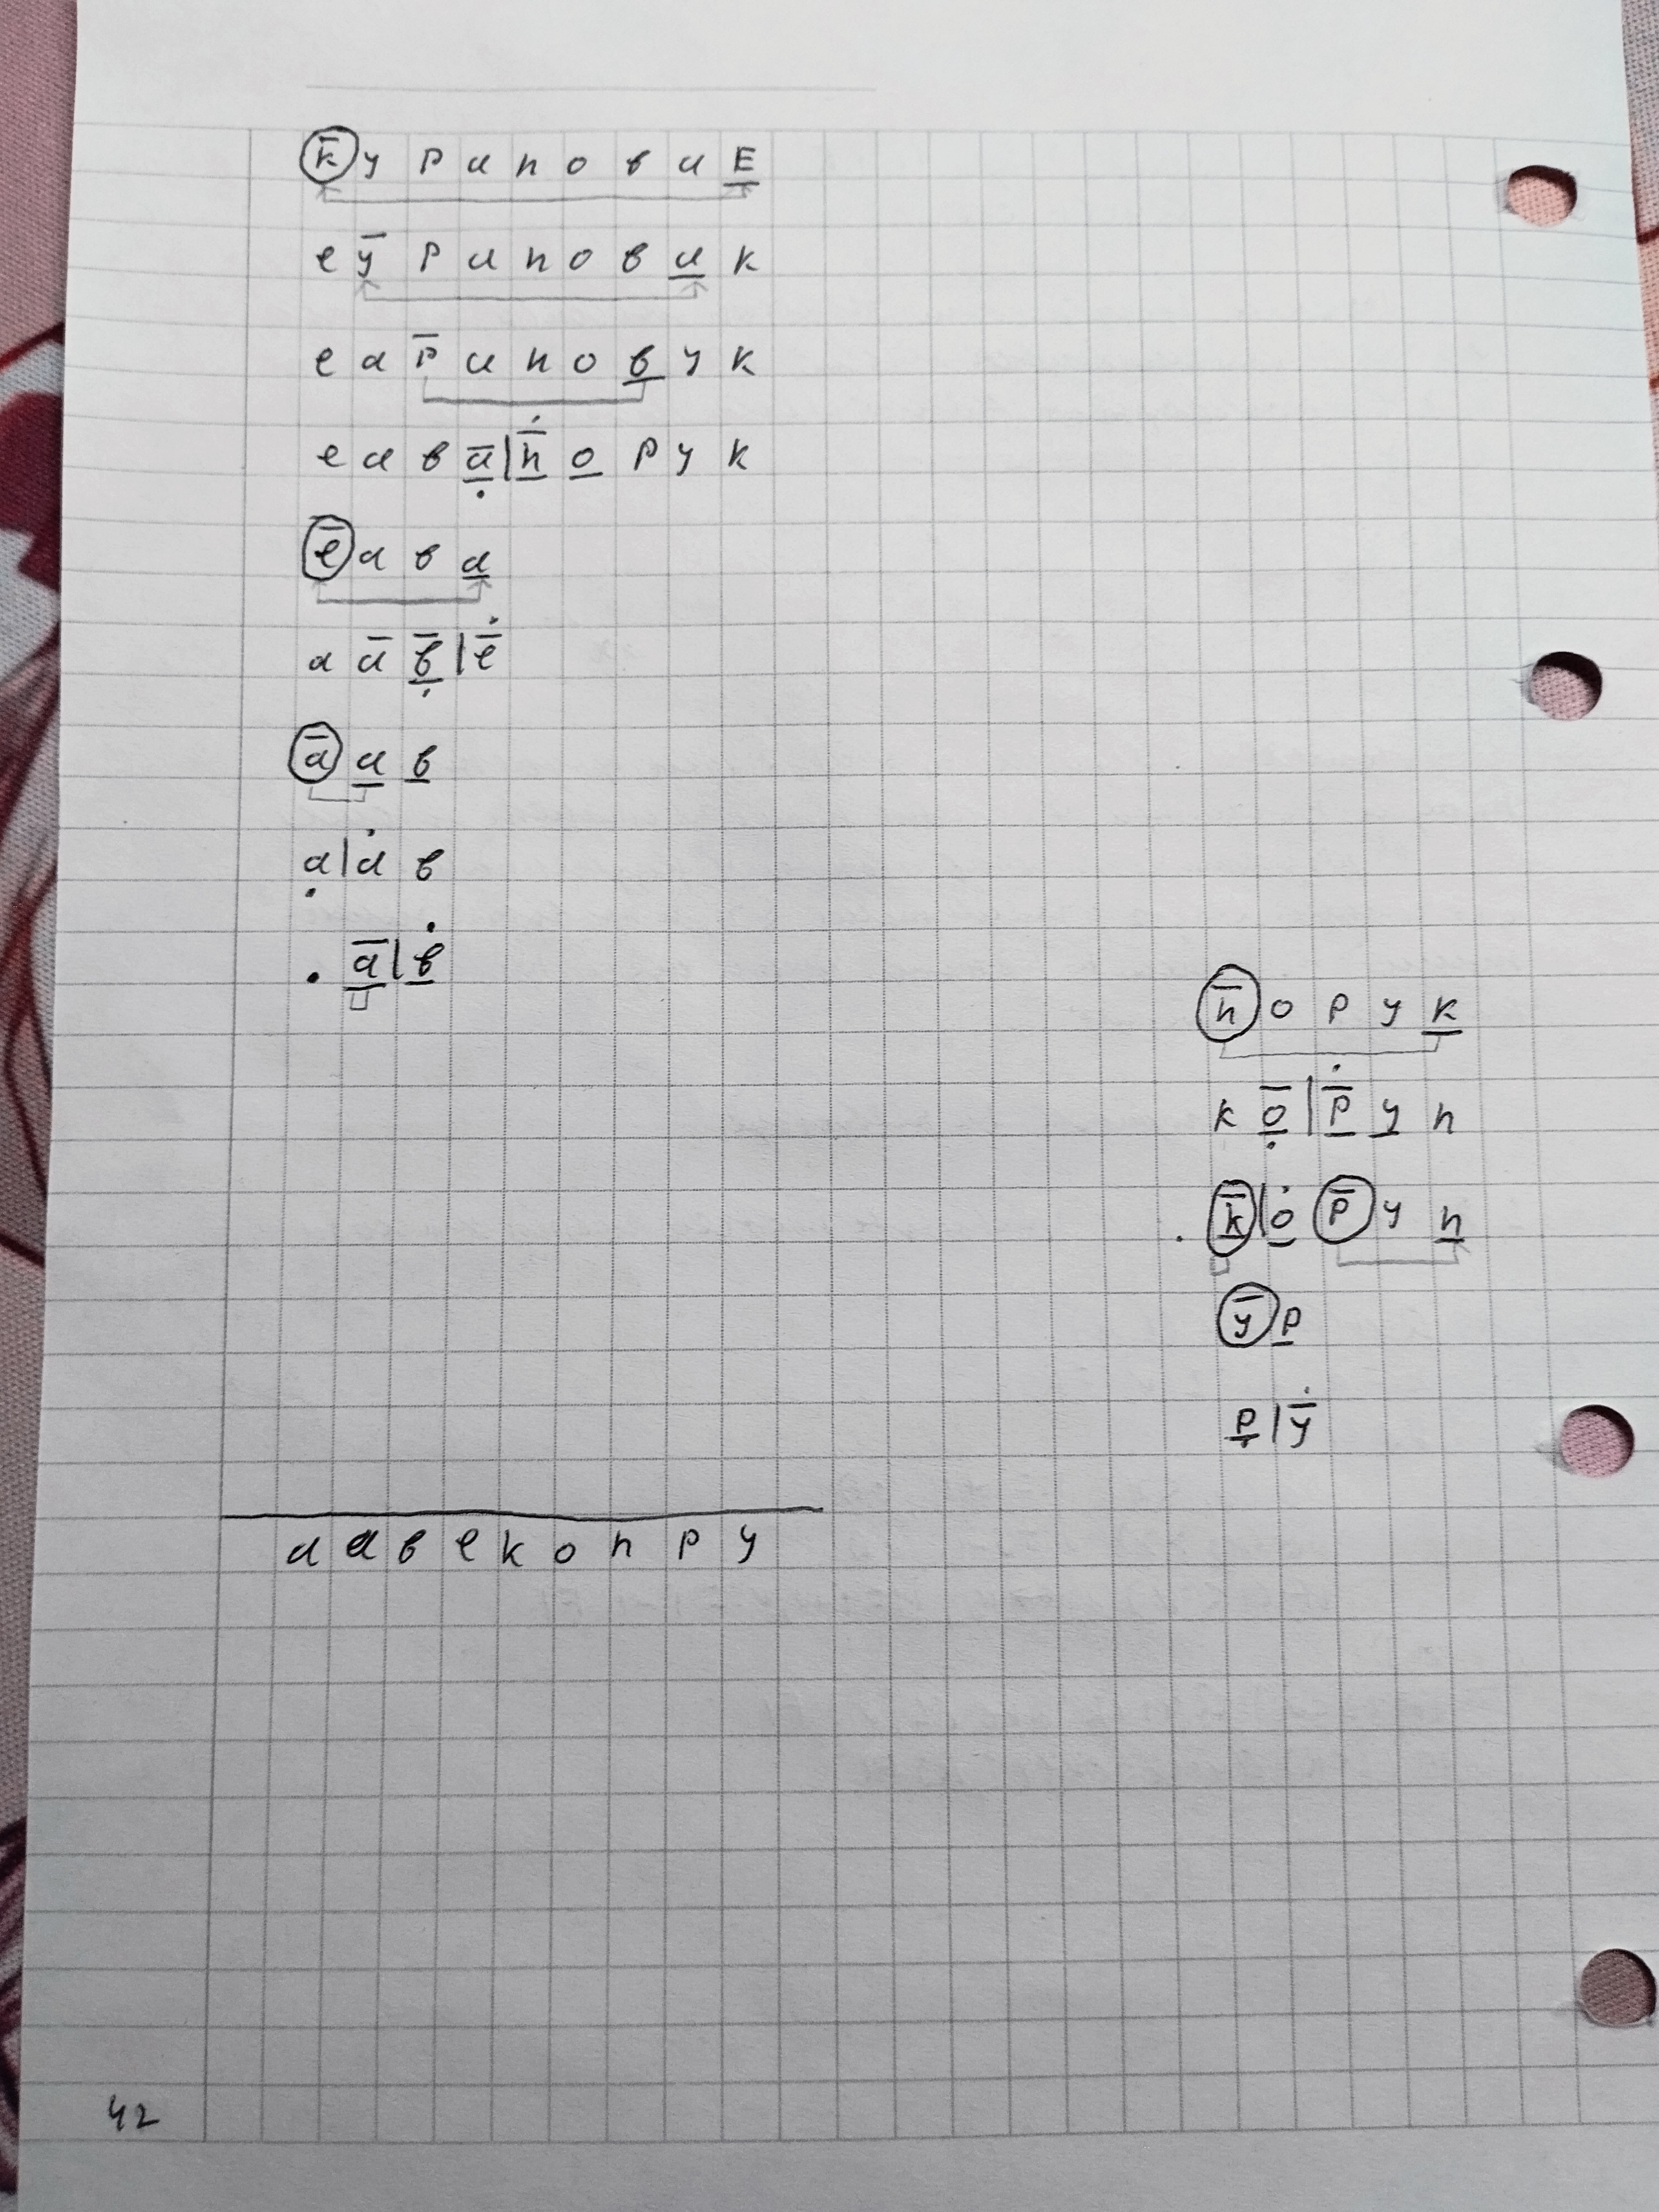 к у р а п о в а Е
е у р а п о в а к
е а р а п о в у к
е а в а | п о р у к
е а в а
а а в | е
а а в
а | а в
. а | в
п о р у к
к о | р у п
. к | о р у п
у р
р | у
а а в е к о п р у
42